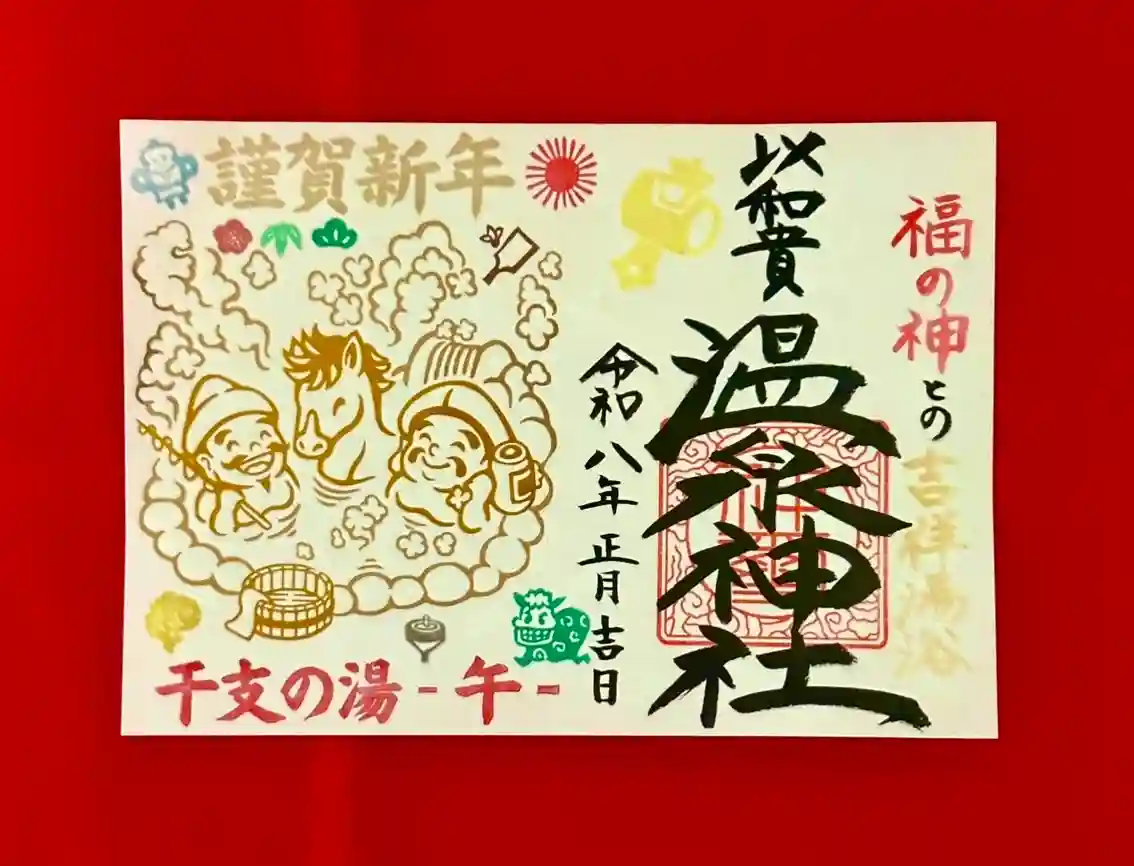 福の神との吉祥湯浴
以和貴
温泉神社
令和八年正月吉日
謹賀新年
干支の湯-午-